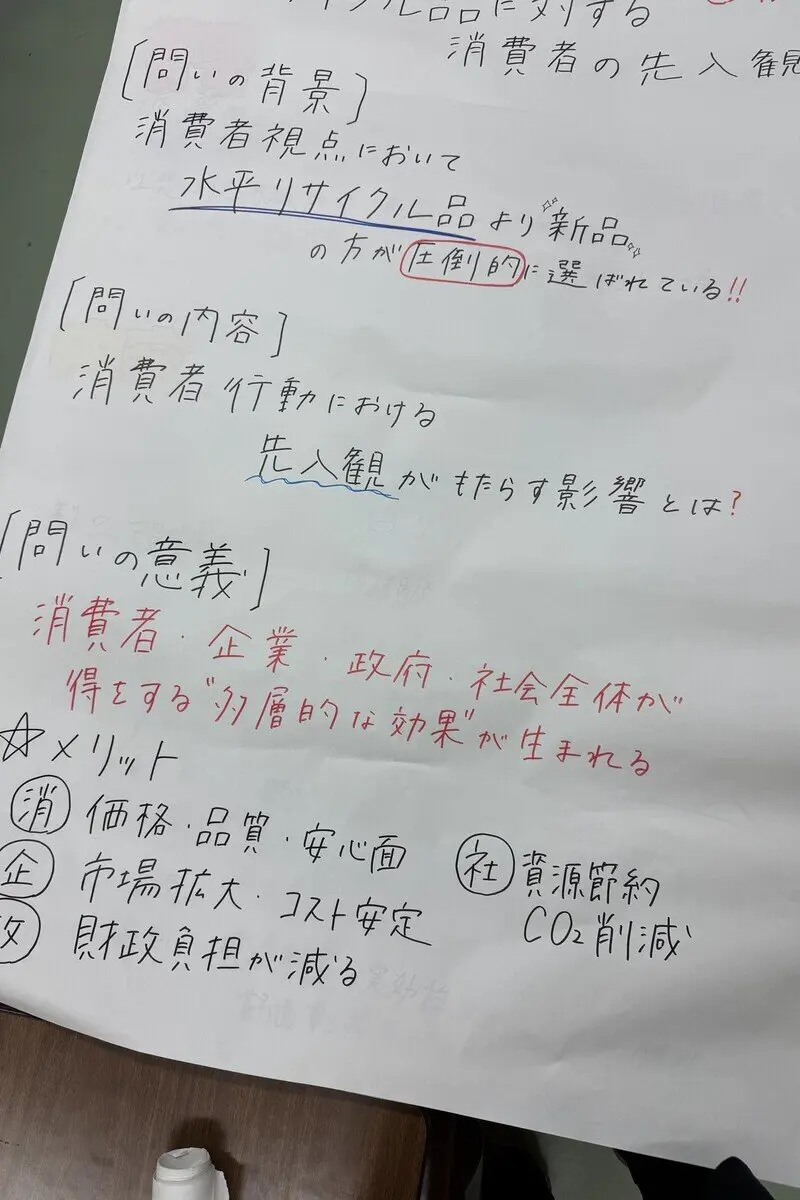 イクル品に対する
消費者の先入観
[問いの背景]
消費者視点において
水平リサイクル品より新品
の方が圧倒的に選ばれている!!
[問いの内容]
消費者行動における
先入観がもたらす影響とは?
[問いの意義]
消費者・企業・政府・社会全体が
得をする"多層的な効果"が生まれる
☆メリット
消 価格・品質・安心面
企 市場拡大・コスト安定
政 財政負担が減る
社 資源節約
CO2削減